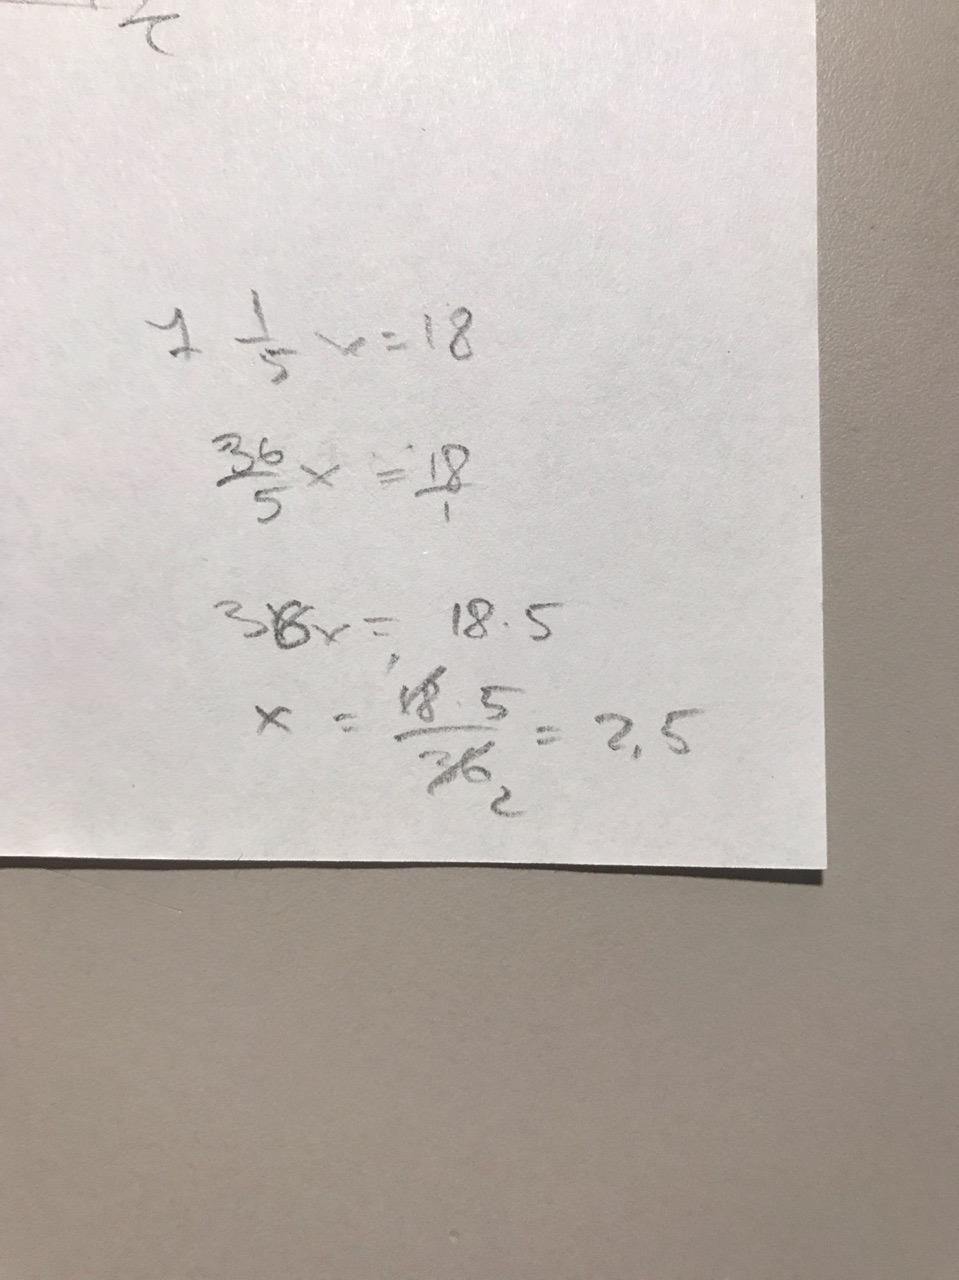 7 1/5 x = 18
36/5 x = 18/1
36x = 18 . 5
x = 18 . 5 / 36 2 = 2,5